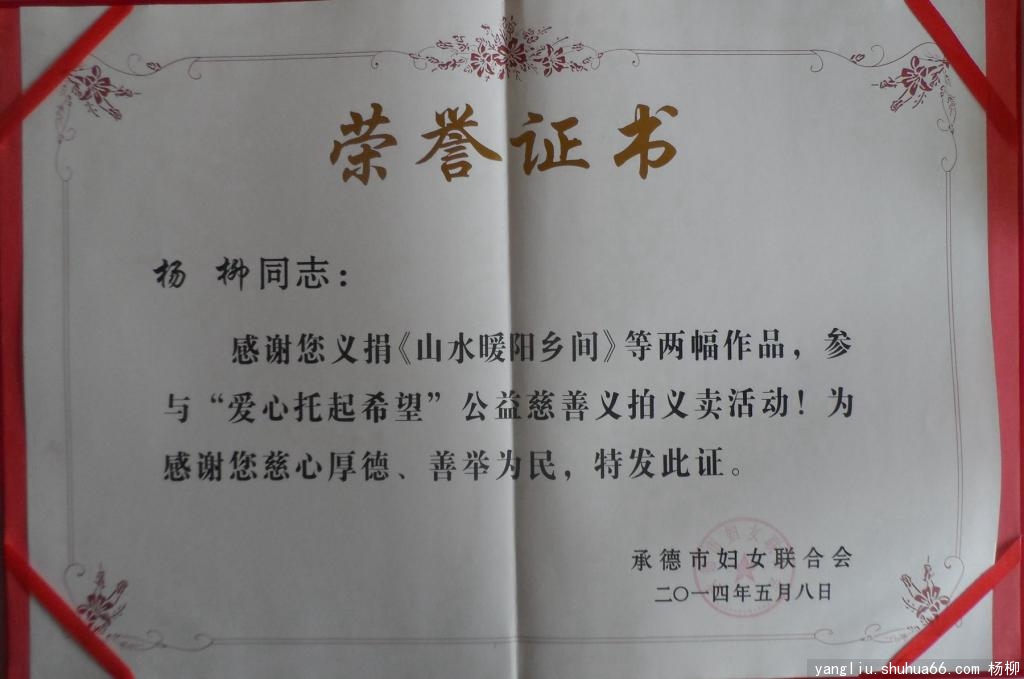 荣誉证书
杨 柳同志：
感谢您义捐《山水暖阳乡间》等两幅作品，参
与“爱心托起希望”公益慈善义拍义卖活动！为
感谢您慈心厚德、善举为民，特发此证。
承德市妇女联合会
二〇一四年五月八日
yangliu.shuhua66.com 杨柳